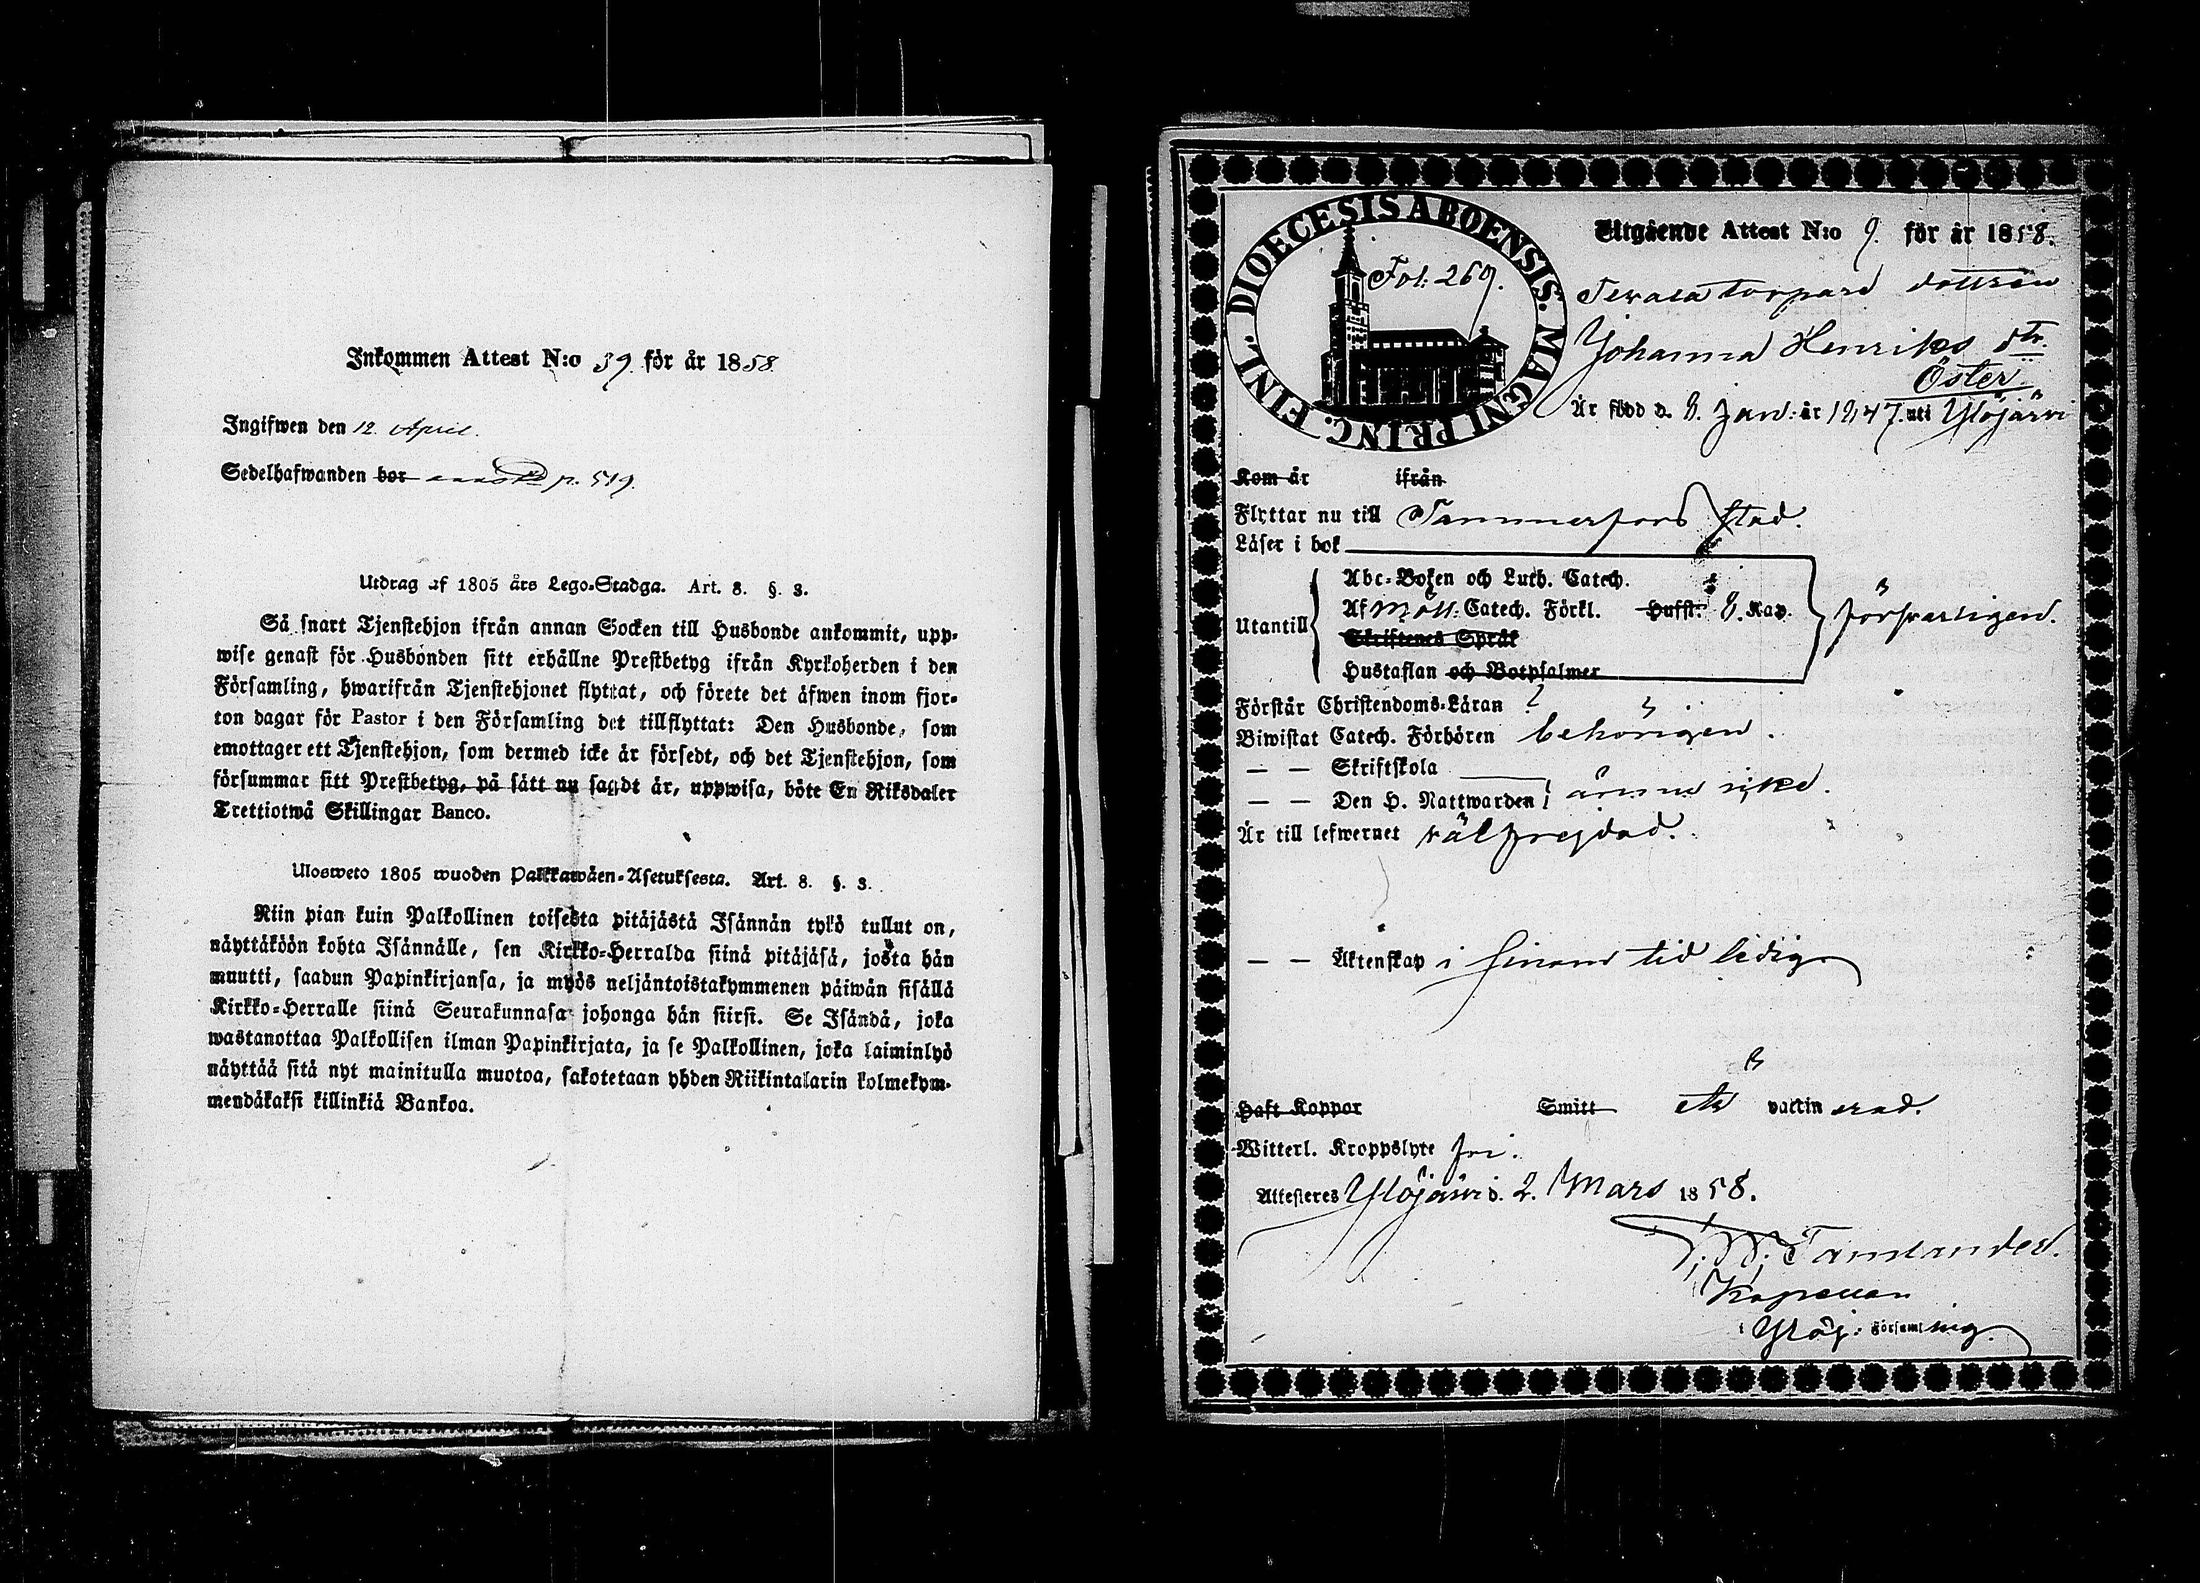 Inkommen Attest N:o 39. för år 1858
Ingifwen den 12. April.
Sedelhafwanden bor p. 519.
Utdrag af 1805 års Lego-Stadga. Art. 8. §. 3.
Så snart Tjenstehjon ifrån annan Socken till Husbonde ankommit, upp-
wise genast för Husbonden sitt erhållne Prestbetyg ifrån Kyrkoherden i den
Församling, hwarifrån Tjenstehjonet flyttat, och förete det äfwen inom fjor-
ton dagar för Pastor i den Församling det tillflyttat: Den Husbonde, som
emottager ett Tjenstehjon, som dermed icke är försedt, och det Tjenstehjon, som
försummar sitt Prestbetyg, på sätt nu sagdt är, uppwisa, böte En Riksdaler
Trettiotwå Skillingar Banco.
Ulosweto 1805 wuoden Palkkawäen-Asetuksesta. Art. 8. §. 3.
Niin pian kuin Palkollinen toisesta pitäjästä Isännän tykö tullut on,
näyttäköön kohta Isännälle, sen Kirkko-Herralda siinä pitäjäsä, josta hän
muutti, saadun Papinkirjansa, ja myös neljäntoistakymmenen päiwän sisällä
Kirkko-Herralle siinä Seurakunnasa johonga hän siirsi. Se Isändä, joka
wastanottaa Palkollisen ilman Papinkirjata, ja se Palkollinen, joka laiminlyö
näyttää sitä nyt mainitulla muotoa, sakotetaan yhden Riikintalarin kolmekym-
mendäkaksi killinkiä Bankoa.
DIOECESIS ABOENSIS. MAGNI PRINC. FINL.
Fol: 269.
Utgående Attest N:o 9. för år 1858.
torpare dottren
Johanna Henriks dtr.
Öster
Är född d. 8. Jan: år 1847. uti Ylöjärvi
Kom år ifrån
Flyttar nu till Tammerfors stad.
Läser i bok
Abc-Boken och Luth. Catech.
Utantill Af Möll: Catech. Förkl. Hufst: 8. Kap. försvarligen.
Skriftenes Språk
Hustaflan och Botpsalmer
Förstår Christendoms-Läran
Biwistat Catech. Förhören behörigen.
— — Skriftskola
— — Den H. Nattwarden ännu icke.
Är till lefwernet välfrejdad.
— — Äktenskap i sinom tid ledig
Haft Koppor Smitt vaccinerad.
Witterl. Kroppslyte fri.
Attesteres Ylöjärvi d. 2. Mars 1858.
Tamlander.
Kapellan
i Ylöj: Församling.